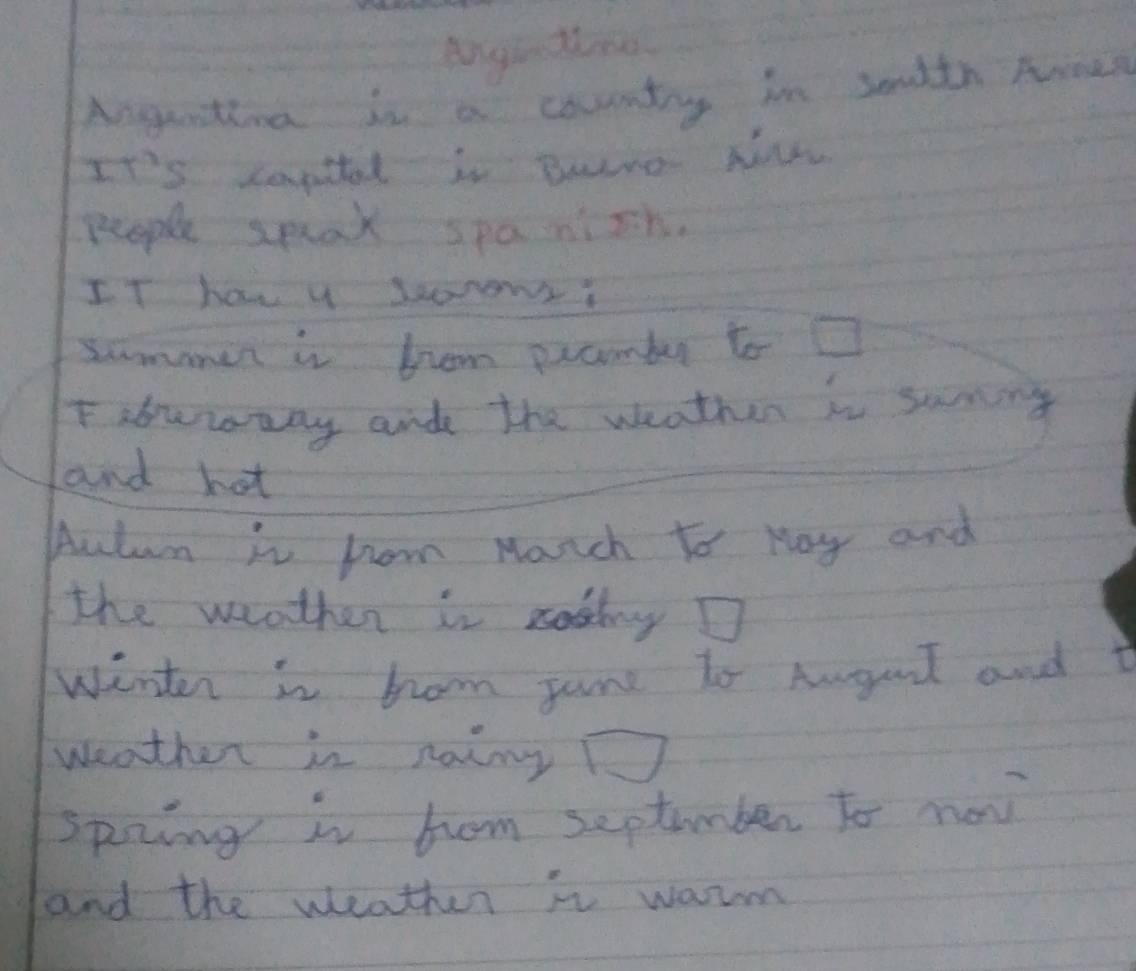 Argentina
Argentina is a country in south Amer
IT's capital is Bueno Aires
People speak spanish.
IT has 4 seasons:
summer is from December to
Februraray ande the weather is sunny
and hot
Autum is from March to May and
the weather is
Winter is from june to August and t
weather is rainy
spring is from september to nov
and the weather is warm